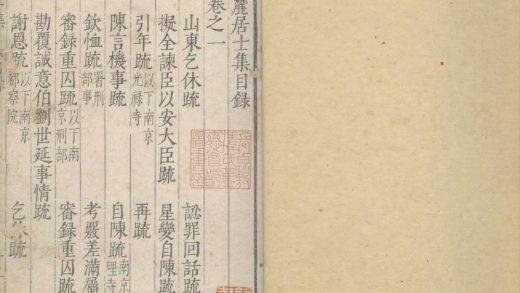 麓居士集目録
卷之一
山東乞休疏
認罪回話疏
擬全諫臣以安大臣疏
星變自陳疏
引年疏以下南京光祿寺
再疏
陳言機事疏
自陳疏南京理寺
欽恤疏署刑部事
考覈差滿屬
審録重囚疏以下南京刑部
審録重囚疏
勘覆誠意伯劉世延事情疏
謝恩疏以下南京都察院
乞休疏